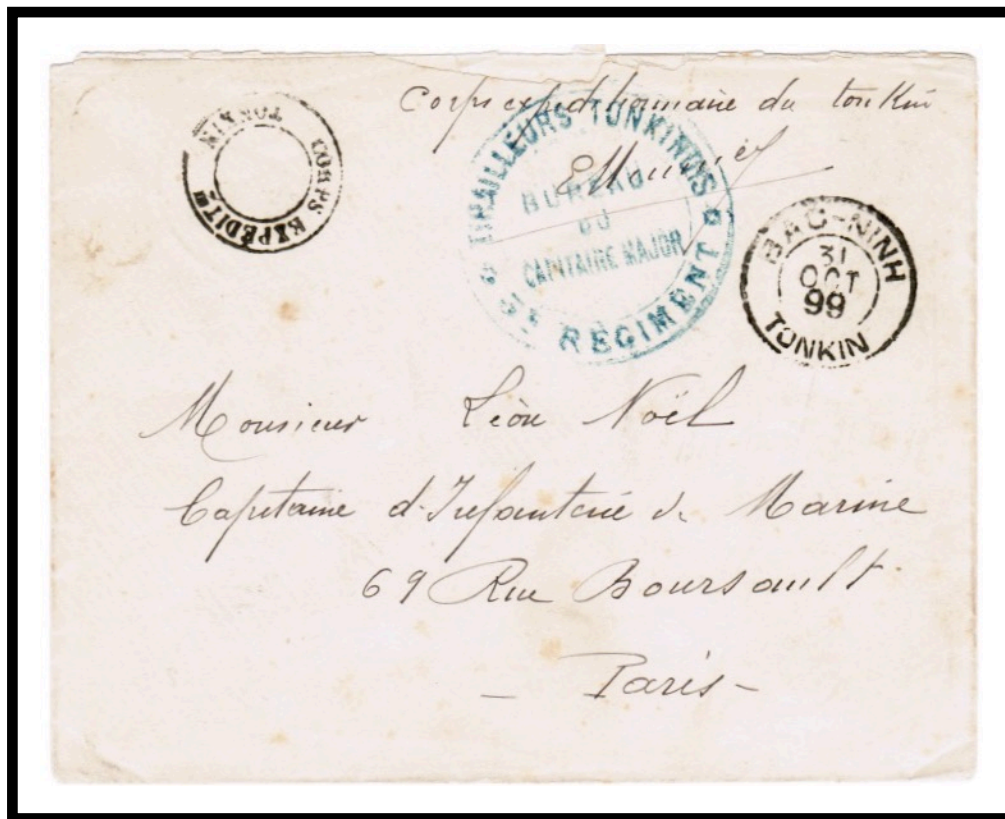 Corps expeditionnaire du tonkin
CORPS EXPÉDITRE
TONKIN
TIRAILLEURS TONKINOIS
BUREAU
DU
CAPITAINE MAJOR
RÉGIMENT
BAC-NINH
31
OCT
99
TONKIN
Monsieur Léon Noël
Capitaine d'Infanterie de Marine
69 Rue Boursault
- Paris -